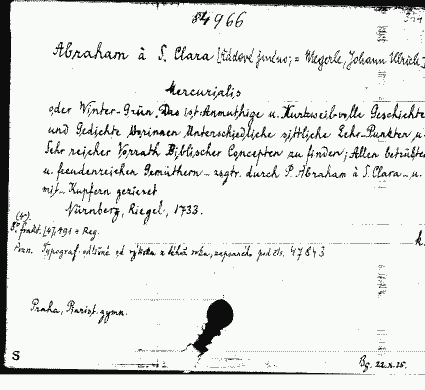 4966
Abraham à S. Clara [řádové jméno; = Megerle, Johann Ulrich]
Mercurialis
oder Winter-Grün, Das ist Anmuthige u. Kurtzweil-volle Geschichte
und Gedichte Worinnen Unterschiedliche sittliche Lehr-Punkten u.
Sehr reicher Vorrath Biblischer Concepten zu finden; Allen betrübten
u. freudenreichen Gemüthern - zsgtr. durch P. Abraham à S. Clara - u.
mit - Kupfern gezieret
Nürnberg, Riegel, 1733.
(4°)
8° frakt. [4], 491 + Reg.
Pozn. Typograf. odlišné od výtisku z téhož roku, zapsaného pod čís. 47843
k.
Praha, Piarist. gymn.
S
Bg. 22.X.25.